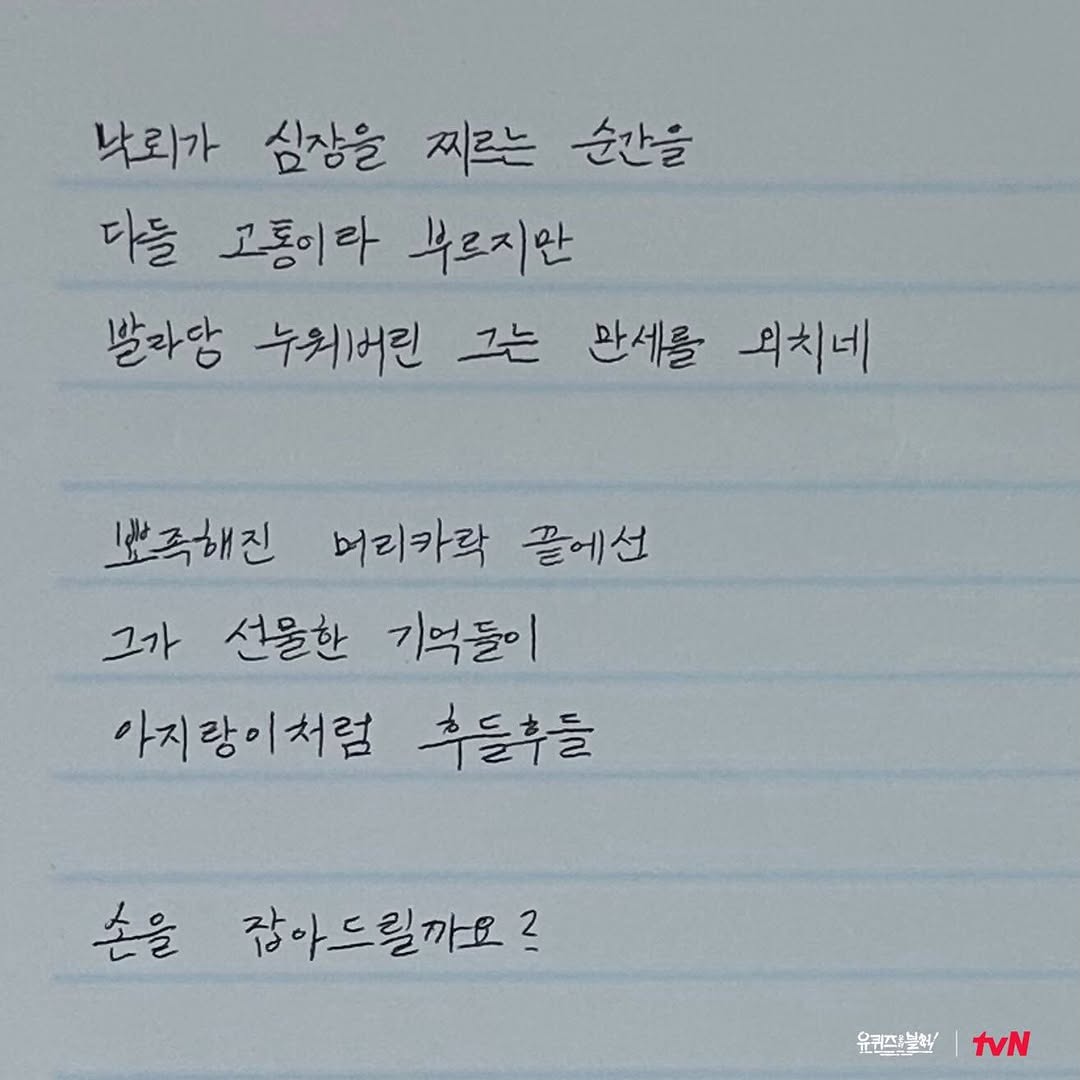 낙뢰가 심장을 찌르는 순간을
다들 고통이라 부르지만
발라당 누워버린 그는 만세를 외치네
뾰족해진 머리카락 끝에선
그가 선물한 기억들이
아지랑이처럼 후들후들
손을 잡아드릴까요?
유퀴즈 온 더 블럭 tvN